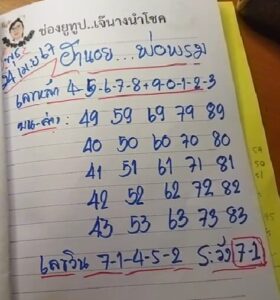 ช่องยูทูป..เจ๊นางนำโชค
24 เม.ย 67
ฮานอย... พ่อพรม
4-5-6-7-8+9-0-1-2-3
บน-ล่าง 49 59 69 79 89
40 50 60 70 80
41 51 61 71 81
42 52 62 72 82
43 53 63 73 83
เลขวิน 7-1-4-5-2 ระวัง 7-1